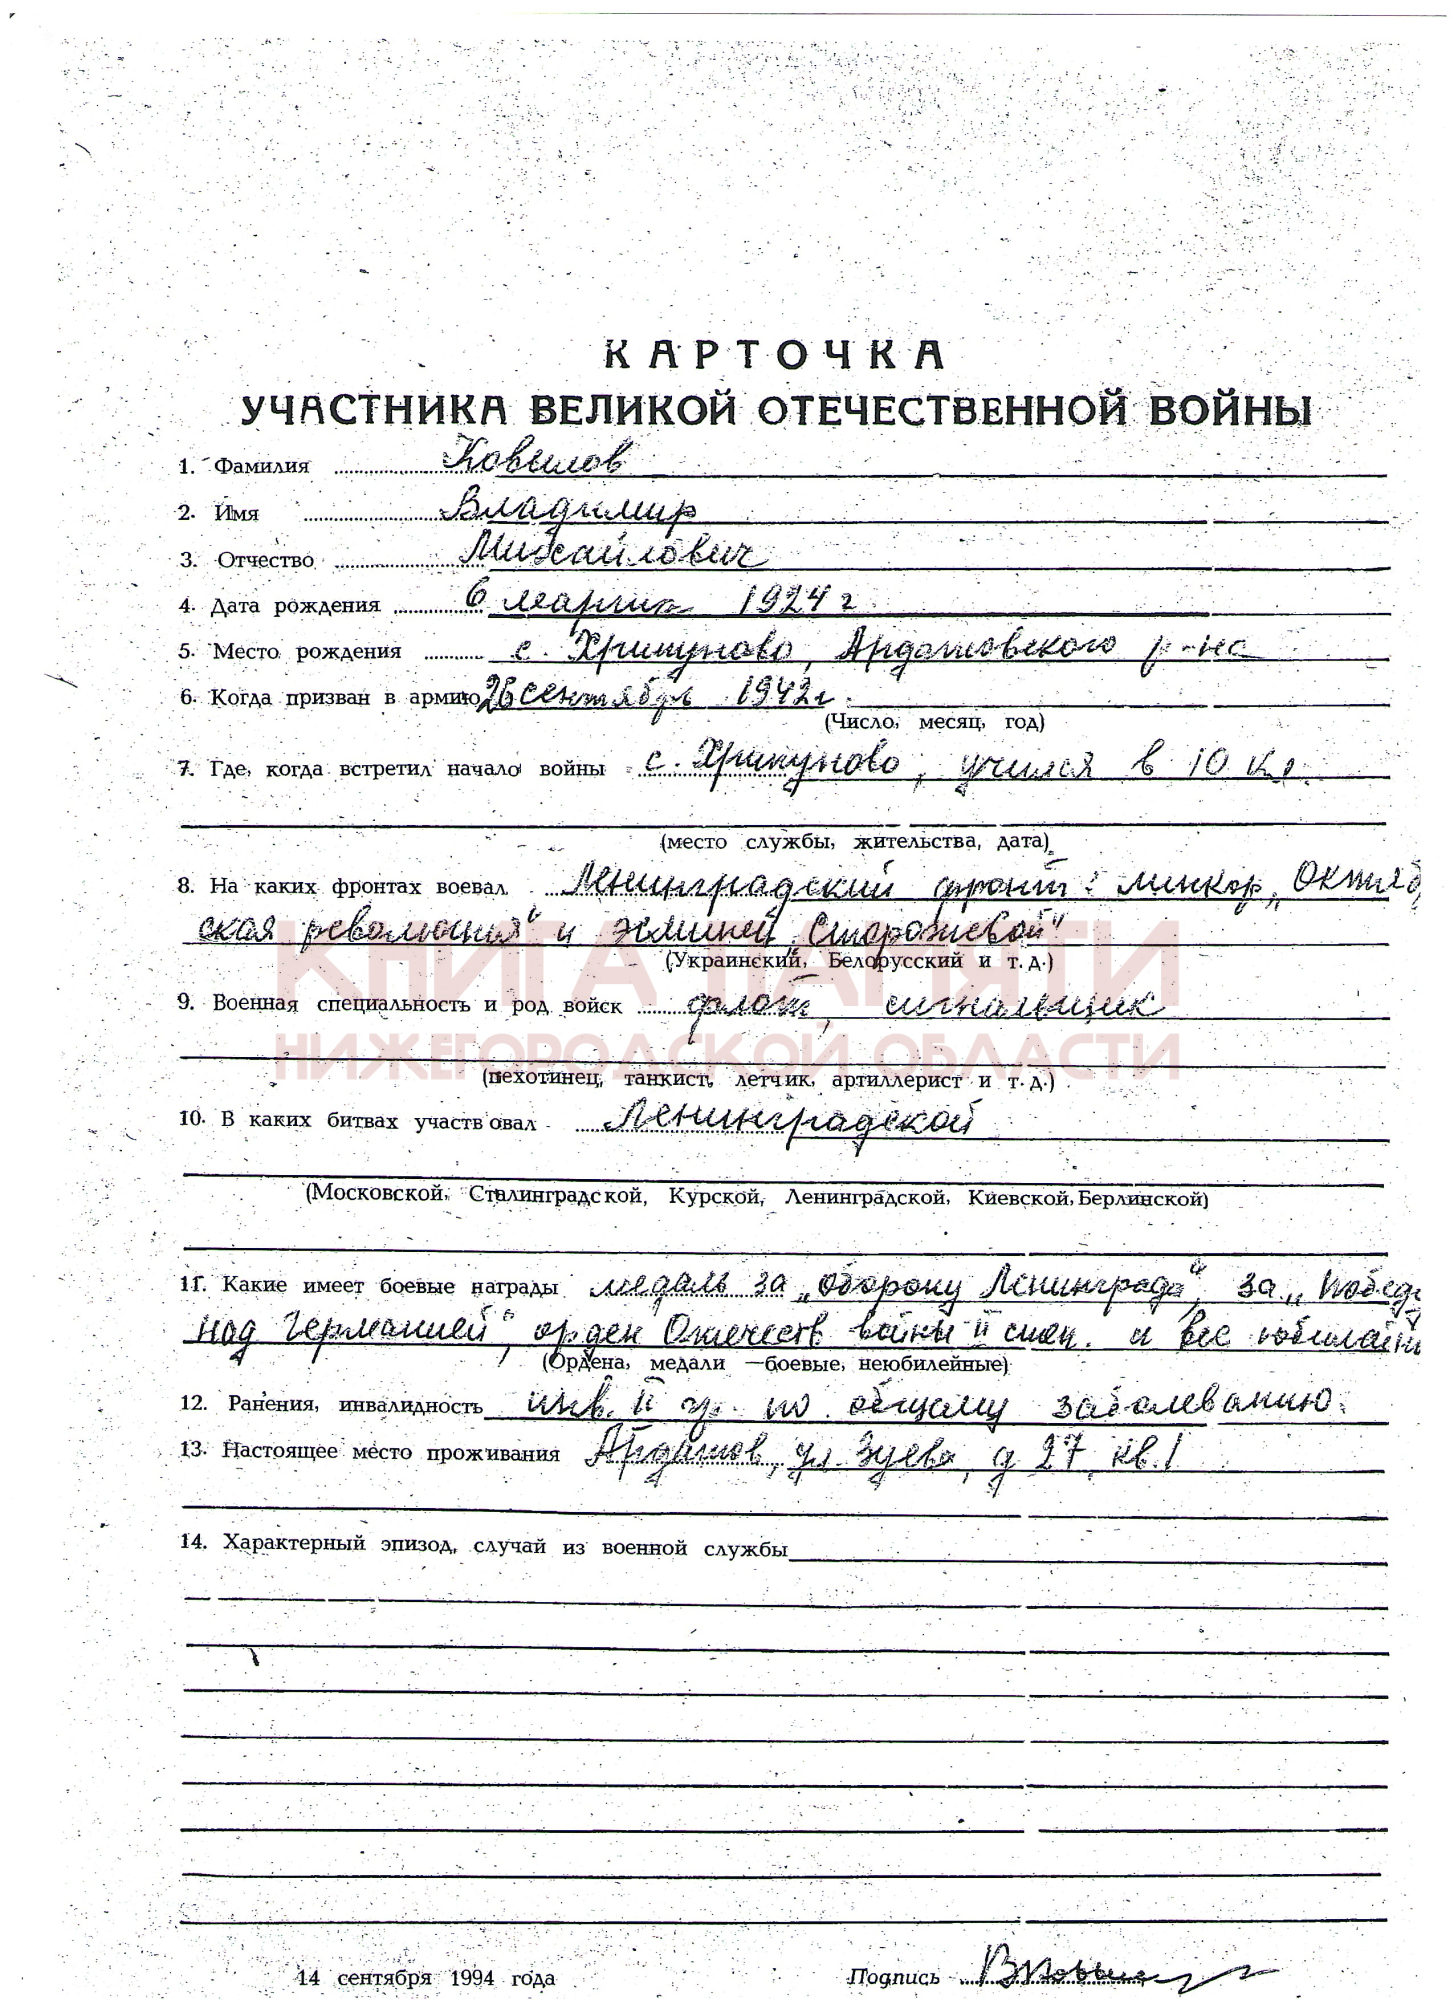 КАРТОЧКА
УЧАСТНИКА ВЕЛИКОЙ ОТЕЧЕСТВЕННОЙ ВОЙНЫ
1. Фамилия Ковылов
2. Имя Владимир
3. Отчество Михайлович
4. Дата рождения 6 марта 1924 г
5. Место рождения с. Хрипуново, Ардатовского р-на
6. Когда призван в армию 26 сентября 1942 г.
(Число, месяц, год)
7. Где, когда встретил начало войны с. Хрипуново, учился в 10 кл.
(место службы, жительства, дата)
8. На каких фронтах воевал Ленинградский фронт: линкор „Октябр
ская революция" и эсминец „Сторожевой"
(Украинский, Белорусский и т. д.)
КНИГА ПАМЯТИ
9. Военная специальность и род войск флот, сигнальщик
НИЖЕГОРОДСКОЙ ОБЛАСТИ
(пехотинец, танкист, летчик, артиллерист и т. д.)
10. В каких битвах участвовал Ленинградской
(Московской, Сталинградской, Курской, Ленинградской, Киевской, Берлинской)
11. Какие имеет боевые награды медаль за „оборону Ленинграда", за „Победу
над Германией", орден Отечеств войны II степ. и все юбилейны
(Ордена, медали —боевые, неюбилейные)
12. Ранения, инвалидность инв. II гр. по общему заболеванию.
13. Настоящее место проживания Ардатов, ул. Зуева, д 27, кв. 1
14. Характерный эпизод, случай из военной службы
14 сентября 1994 года Подпись